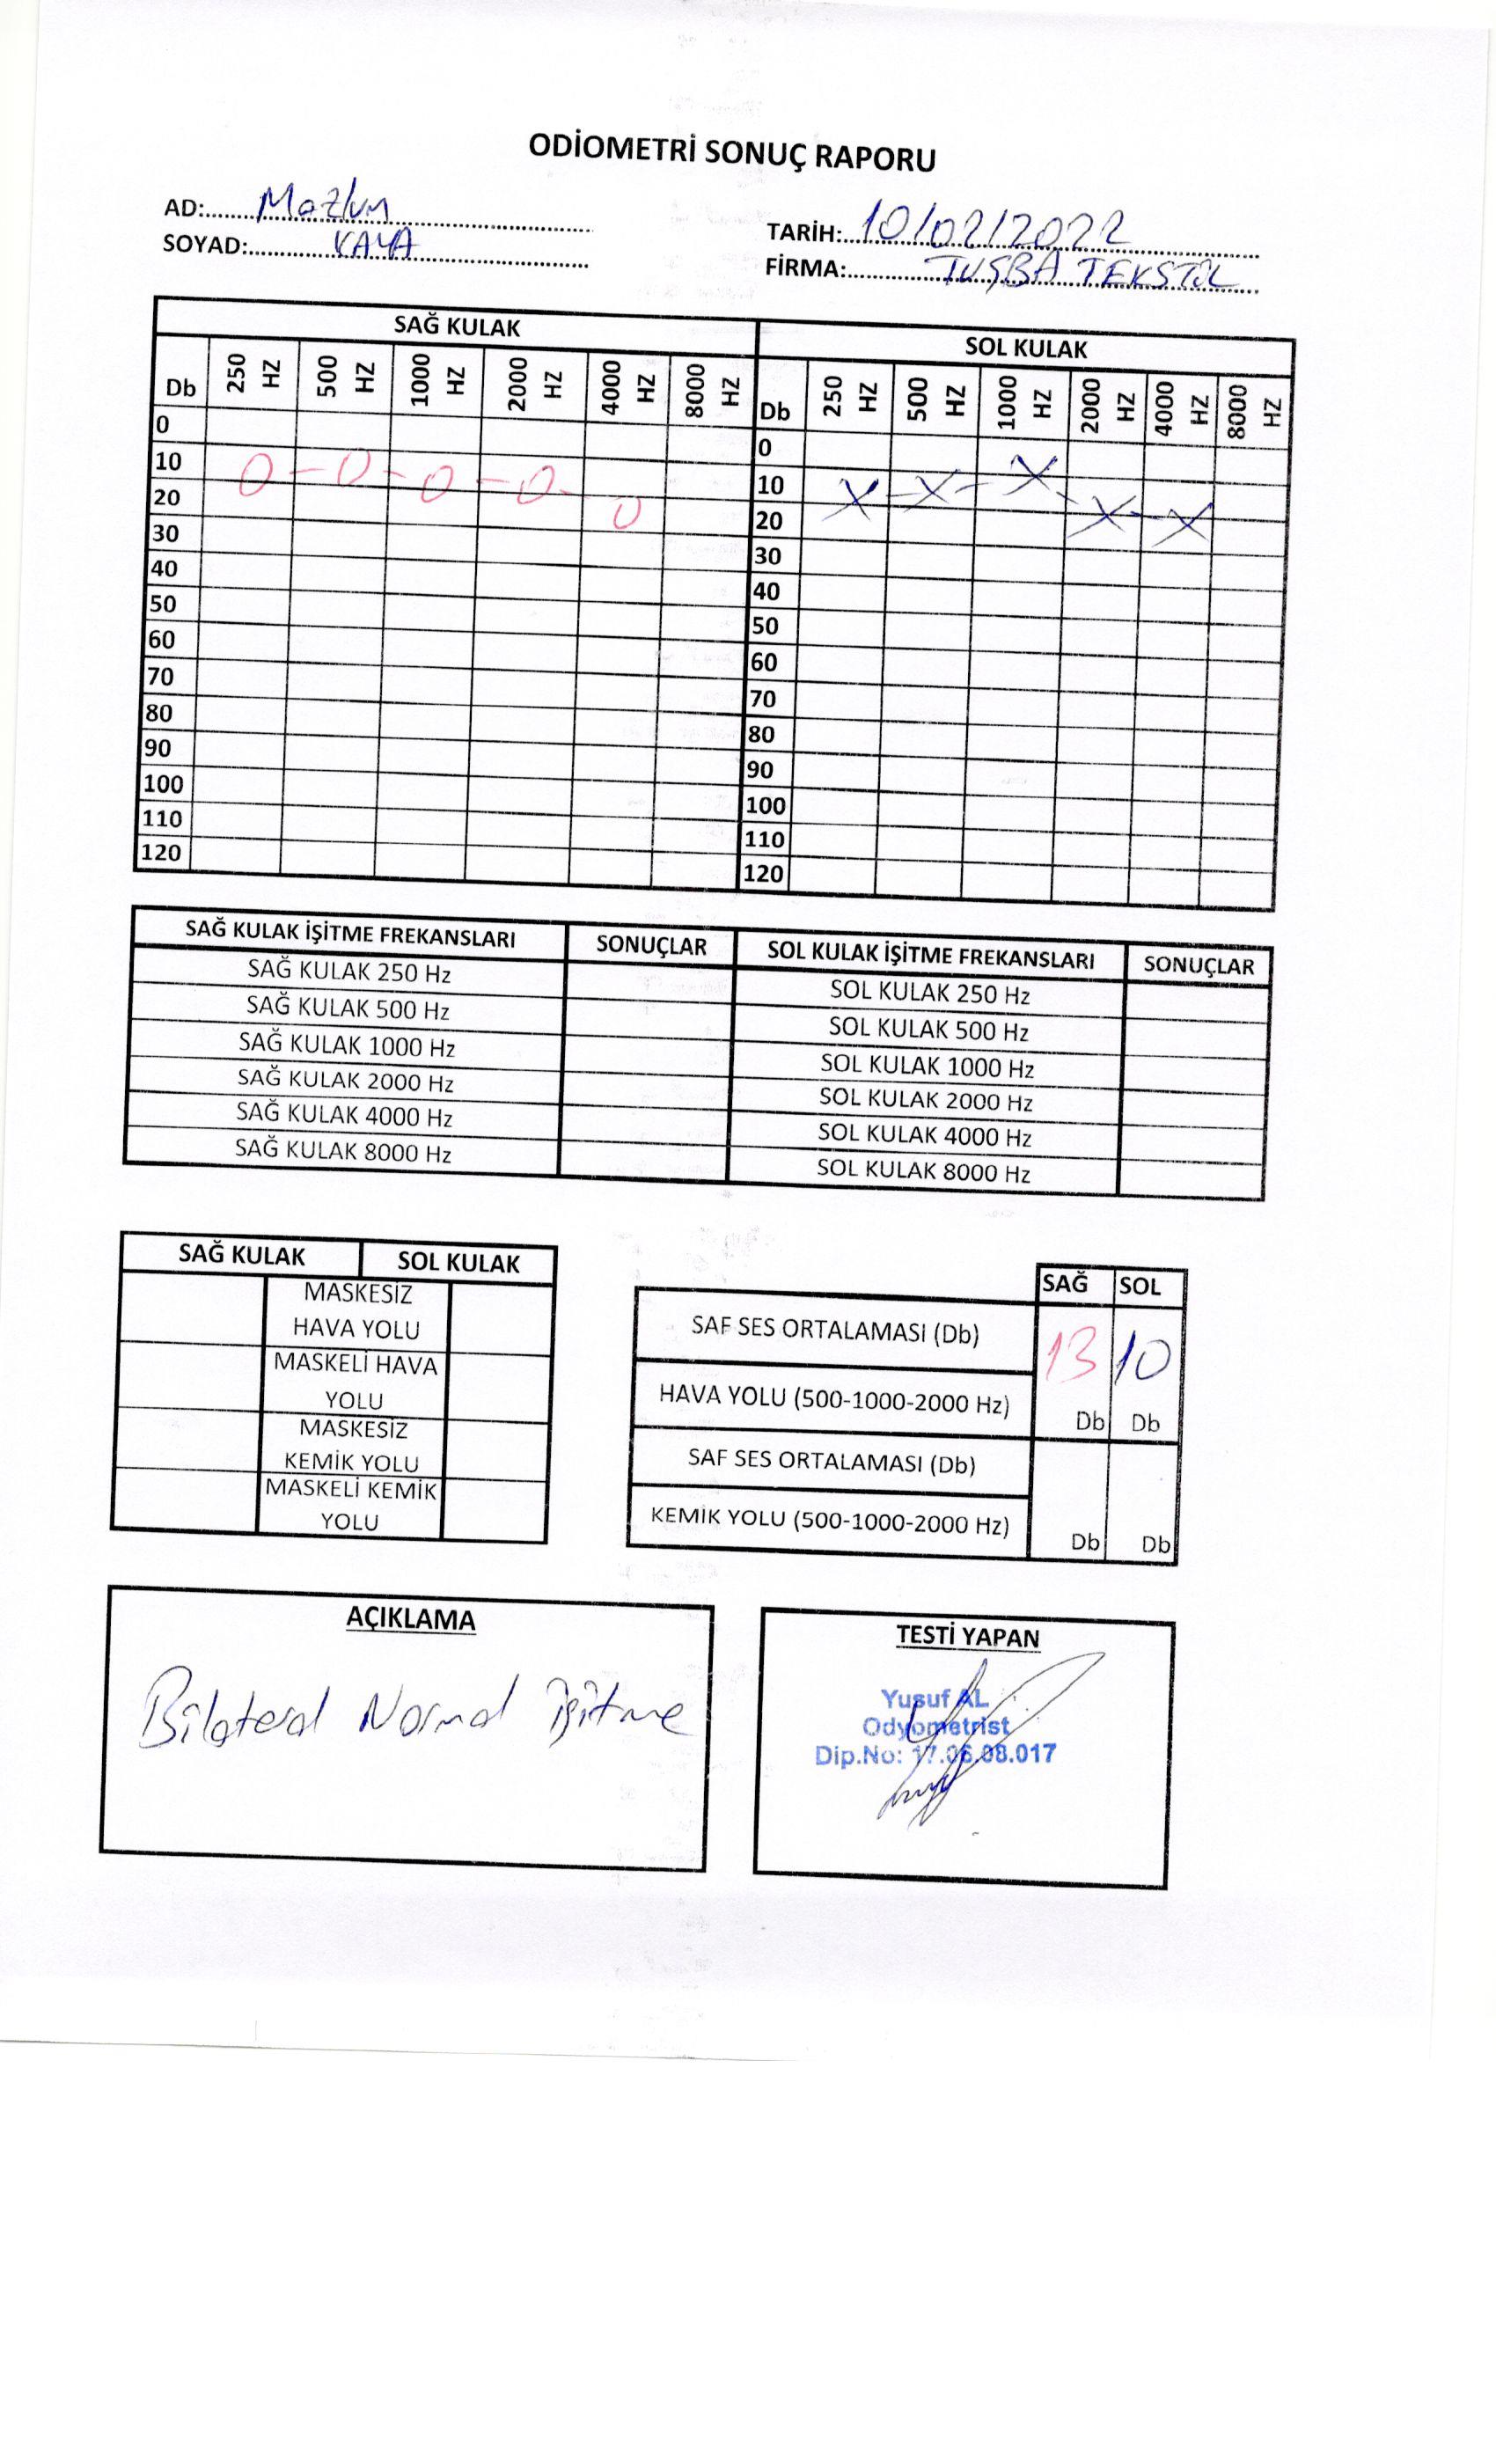 ODİOMETRİ SONUÇ RAPORU
AD: Mazlum
SOYAD: KAYA
TARİH: 10/02/2022
FİRMA: TUŞBA TEKSTİL
SAĞ KULAK SOL KULAK
Db 250 HZ 500 HZ 1000 HZ 2000 HZ 4000 HZ 8000 HZ Db 250 HZ 500 HZ 1000 HZ 2000 HZ 4000 HZ 8000 HZ
0 0
10 10
20 20
30 30
40 40
50 50
60 60
70 70
80 80
90 90
100 100
110 110
120 120
SAĞ KULAK İŞİTME FREKANSLARI SONUÇLAR SOL KULAK İŞİTME FREKANSLARI SONUÇLAR
SAĞ KULAK 250 Hz SOL KULAK 250 Hz
SAĞ KULAK 500 Hz SOL KULAK 500 Hz
SAĞ KULAK 1000 Hz SOL KULAK 1000 Hz
SAĞ KULAK 2000 Hz SOL KULAK 2000 Hz
SAĞ KULAK 4000 Hz SOL KULAK 4000 Hz
SAĞ KULAK 8000 Hz SOL KULAK 8000 Hz
SAĞ KULAK SOL KULAK
MASKESİZ
HAVA YOLU
MASKELİ HAVA
YOLU
MASKESİZ
KEMİK YOLU
MASKELİ KEMİK
YOLU
SAĞ SOL
SAF SES ORTALAMASI (Db) 13 10
HAVA YOLU (500-1000-2000 Hz) Db Db
SAF SES ORTALAMASI (Db)
KEMİK YOLU (500-1000-2000 Hz) Db Db
AÇIKLAMA
Bilateral Normal işitme
TESTİ YAPAN
Yusuf AL
Odyometrist
Dip.No: 17.06.08.017